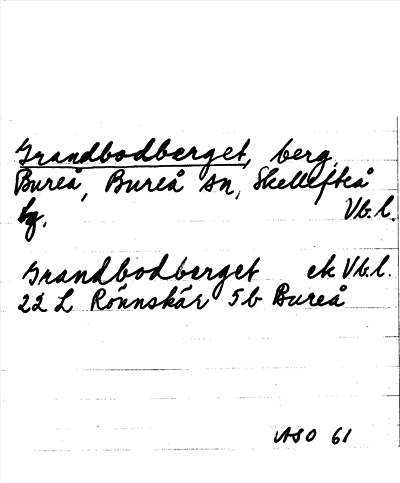 Grandbodberget, berg,
Bureå, Bureå sn, Skellefteå
tg. Vb. l.
Grandbodberget ek Vb. l.
22 L Rönnskär 5b Bureå
ASO 61